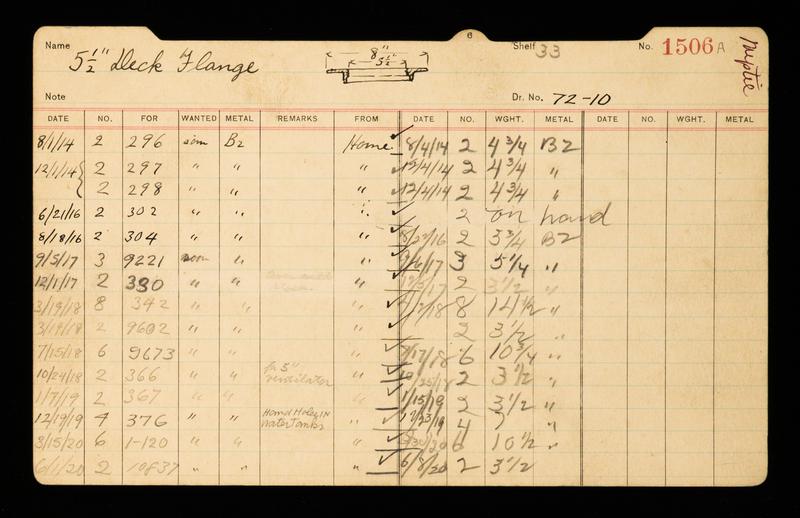 6
Name 5 1/2" Deck Flange 8" 5 1/2" Shelf 33 No. 1506 A
Note Dr. No. 72-10
DATE NO. FOR WANTED METAL REMARKS FROM DATE NO. WGHT. METAL DATE NO. WGHT. METAL
8/1/14 2 296 Bz Home ✓ 8/4/14 2 4 3/4 Bz
12/1/14 { 2 297 " " " ✓ 12/4/14 2 4 3/4 "
2 298 " " " ✓ 12/4/14 2 4 3/4 "
6/21/16 2 302 " " " ✓ 2 on hand
8/18/16 2 304 " " " ✓ 8/22/16 2 3 3/4 Bz
9/5/17 3 9221 " " ✓ 3 5 1/4 "
12/1/17 2 330 " " " ✓ 2 3 1/2 "
3/19/18 8 342 " " " ✓ 8 14 1/2 "
3/19/18 2 9602 " " " ✓ 2 3 1/2 "
7/15/18 6 9673 " " " ✓ 7/17/18 6 10 3/4 "
10/24/18 2 366 " " for 5" ventilator " ✓ 10/25/18 2 3 1/2 "
1/7/19 2 367 " " " ✓ 1/15/19 2 3 1/2 "
12/19/19 4 376 " " Hand Holes IN water Tanks " ✓ 12/23/19 4 7 "
3/15/20 6 1-120 " " " ✓ 6 10 1/2 "
6/1/20 2 10837 " " " ✓ 6/8/20 2 3 1/2